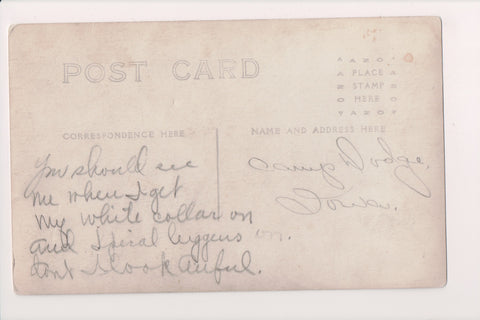 POST CARD
AZO
PLACE
STAMP
HERE
AZO
CORRESPONDENCE HERE
NAME AND ADDRESS HERE
You should see
me when I get
my white collar on
and Spiral leggens on.
dont I look awful.
Camp Dodge,
Iowa.